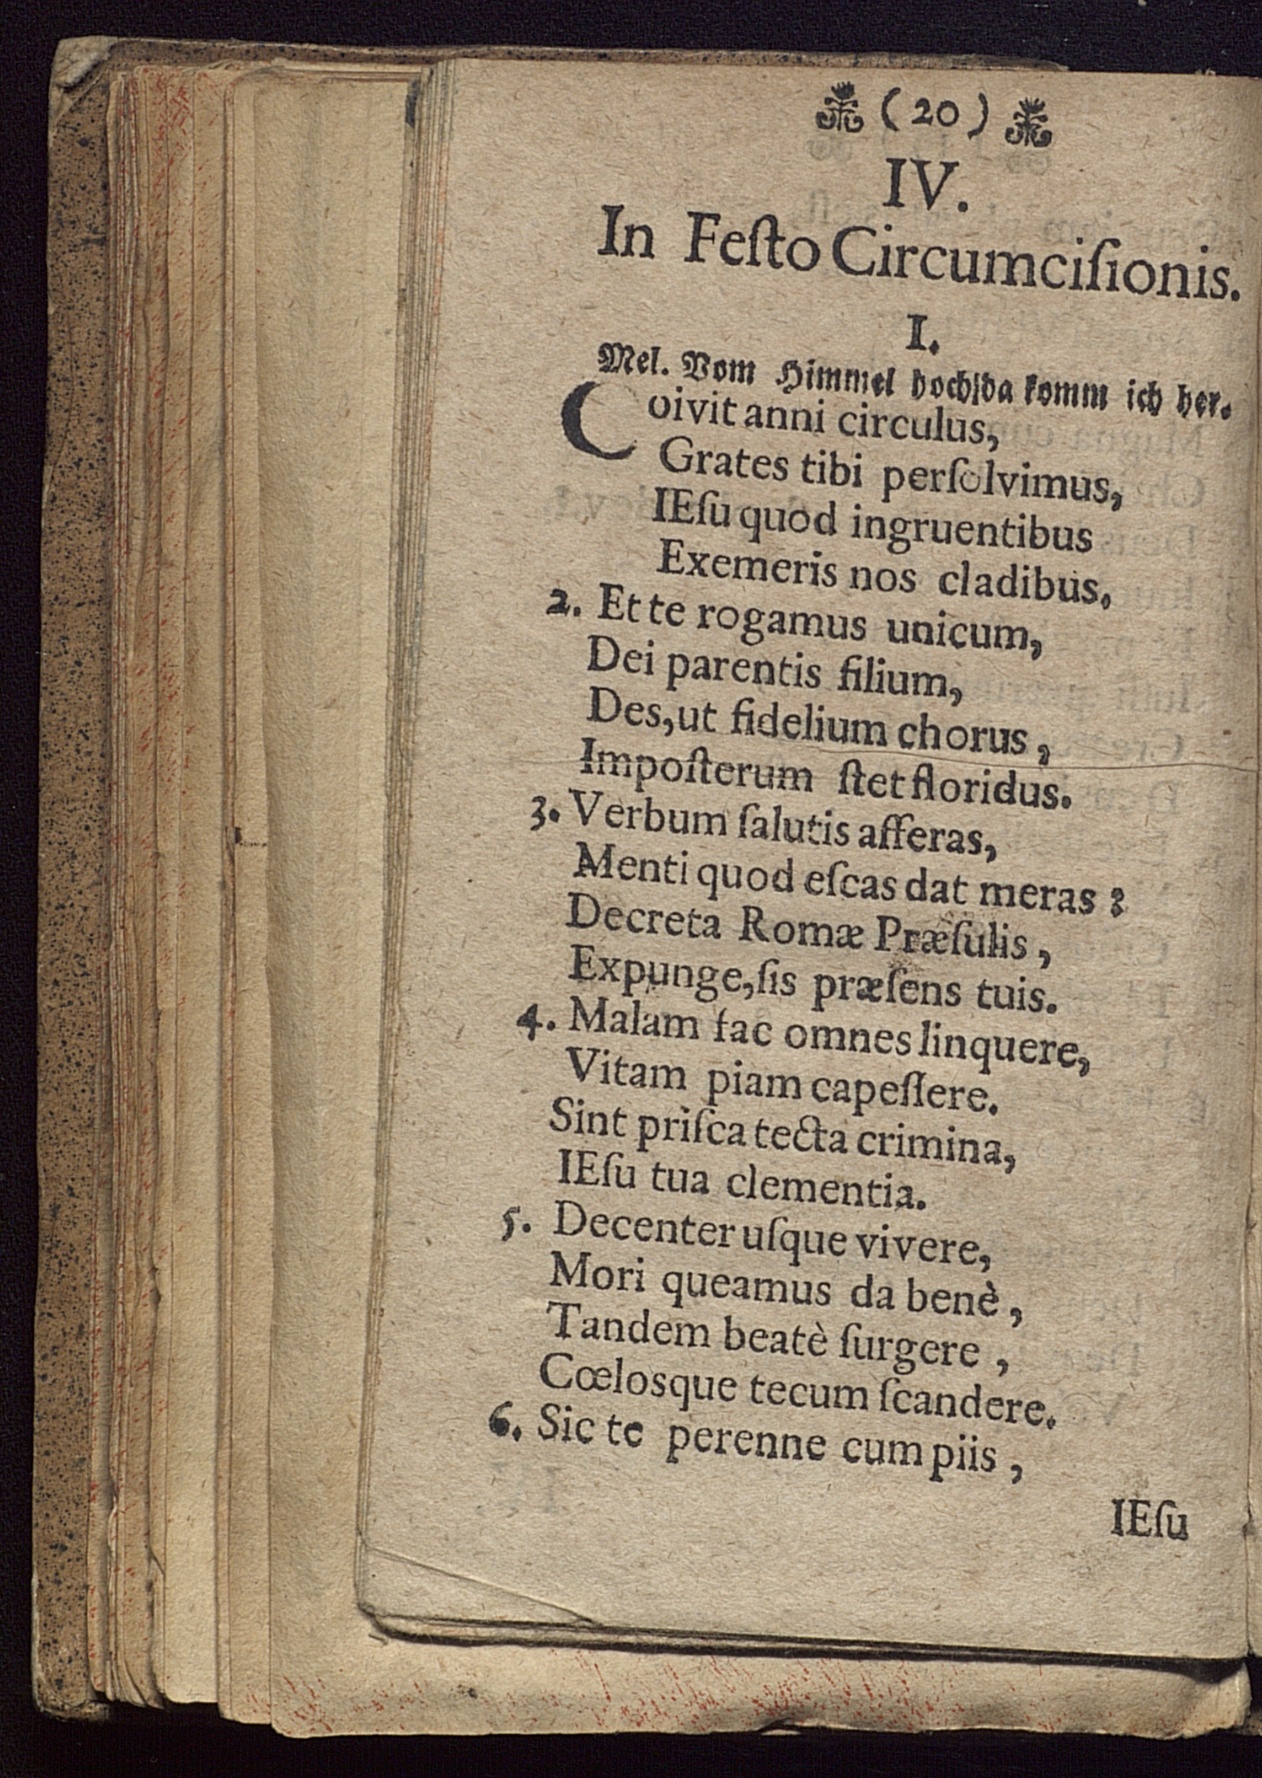 (20)
IV.
In Feſto Circumciſionis.
I.
Mel. Vom Himmel hoch/da komm ich her.
Coivit anni circulus,
Grates tibi perſolvimus,
IEſu quod ingruentibus
Exemeris nos cladibus.
2. Et te rogamus unicum,
Dei parentis filium,
Des, ut fidelium chorus,
Impoſterum ſtet floridus.
3. Verbum ſalutis afferas,
Menti quod eſcas dat meras:
Decreta Romæ Præſulis,
Expunge, ſis præſens tuis.
4. Malam fac omnes linquere,
Vitam piam capeſſere.
Sint priſca tecta crimina,
IEſu tua clementia.
5. Decenter uſque vivere,
Mori queamus da benè,
Tandem beatè ſurgere,
Cœlosque tecum ſcandere.
6. Sic te perenne cum piis,
IEſu